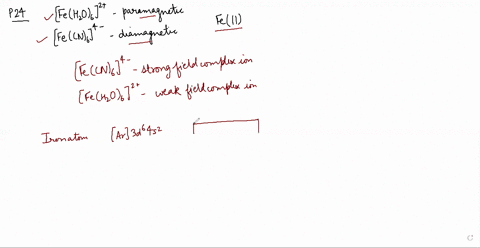 P24 ✓[Fe(H₂O)₆]²⁺ - paramagnetic Fe(II)
✓[Fe(CN)₆]⁴⁻ - diamagnetic
[Fe(CN)₆]⁴⁻ - strong field complex ion
[Fe(H₂O)₆]²⁺ - weak field complex ion
Iron atom [Ar] 3d⁶ 4s²